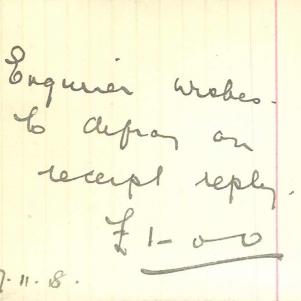 Enquirier wishes
to defray on
receipt reply
£1-0-0
7.11.18.